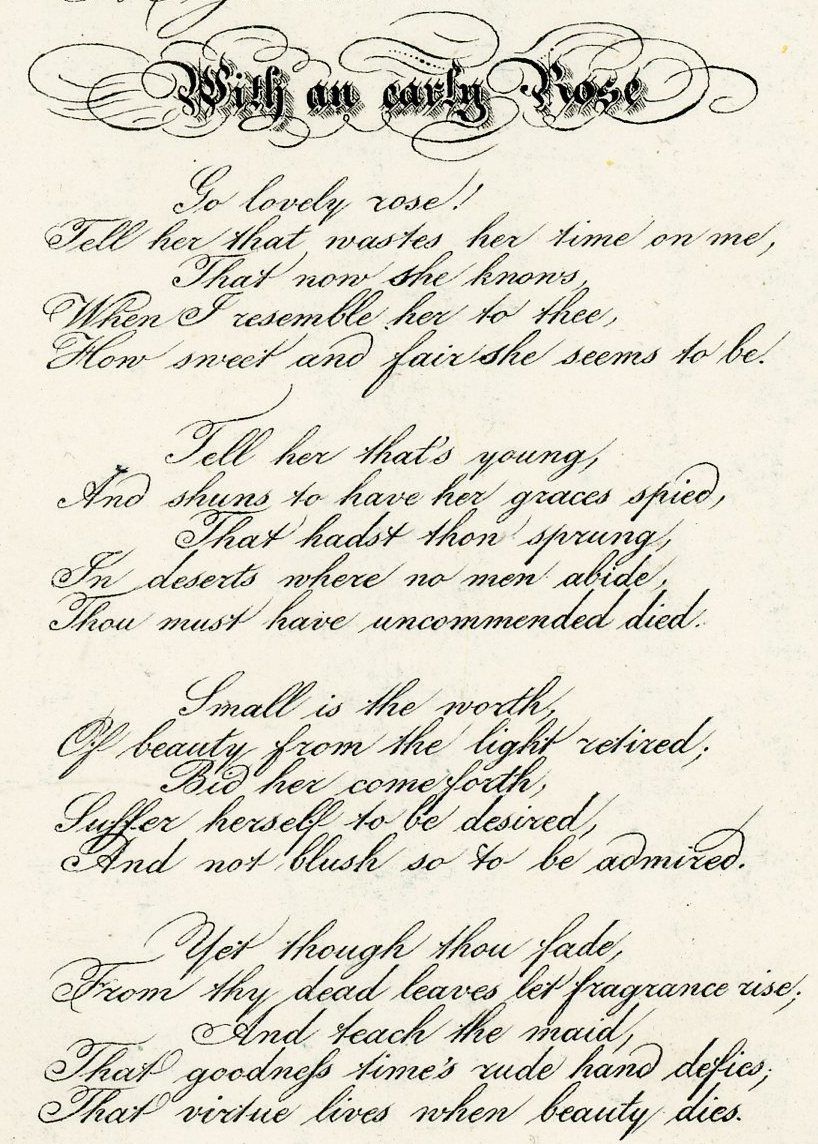 With an early Rose
Go lovely rose!
Tell her that wastes her time on me,
That now she knows,
When I resemble her to thee,
How sweet and fair she seems to be.
Tell her that's young,
And shuns to have her graces spied,
That hadst thou sprung,
In deserts where no men abide,
Thou must have uncommended died.
Small is the worth,
Of beauty from the light retired;
Bid her come forth,
Suffer herself to be desired,
And not blush so to be admired.
Yet though thou fade,
From thy dead leaves let fragrance rise;
And teach the maid,
That goodneſs time's rude hand defies;
That virtue lives when beauty dies.